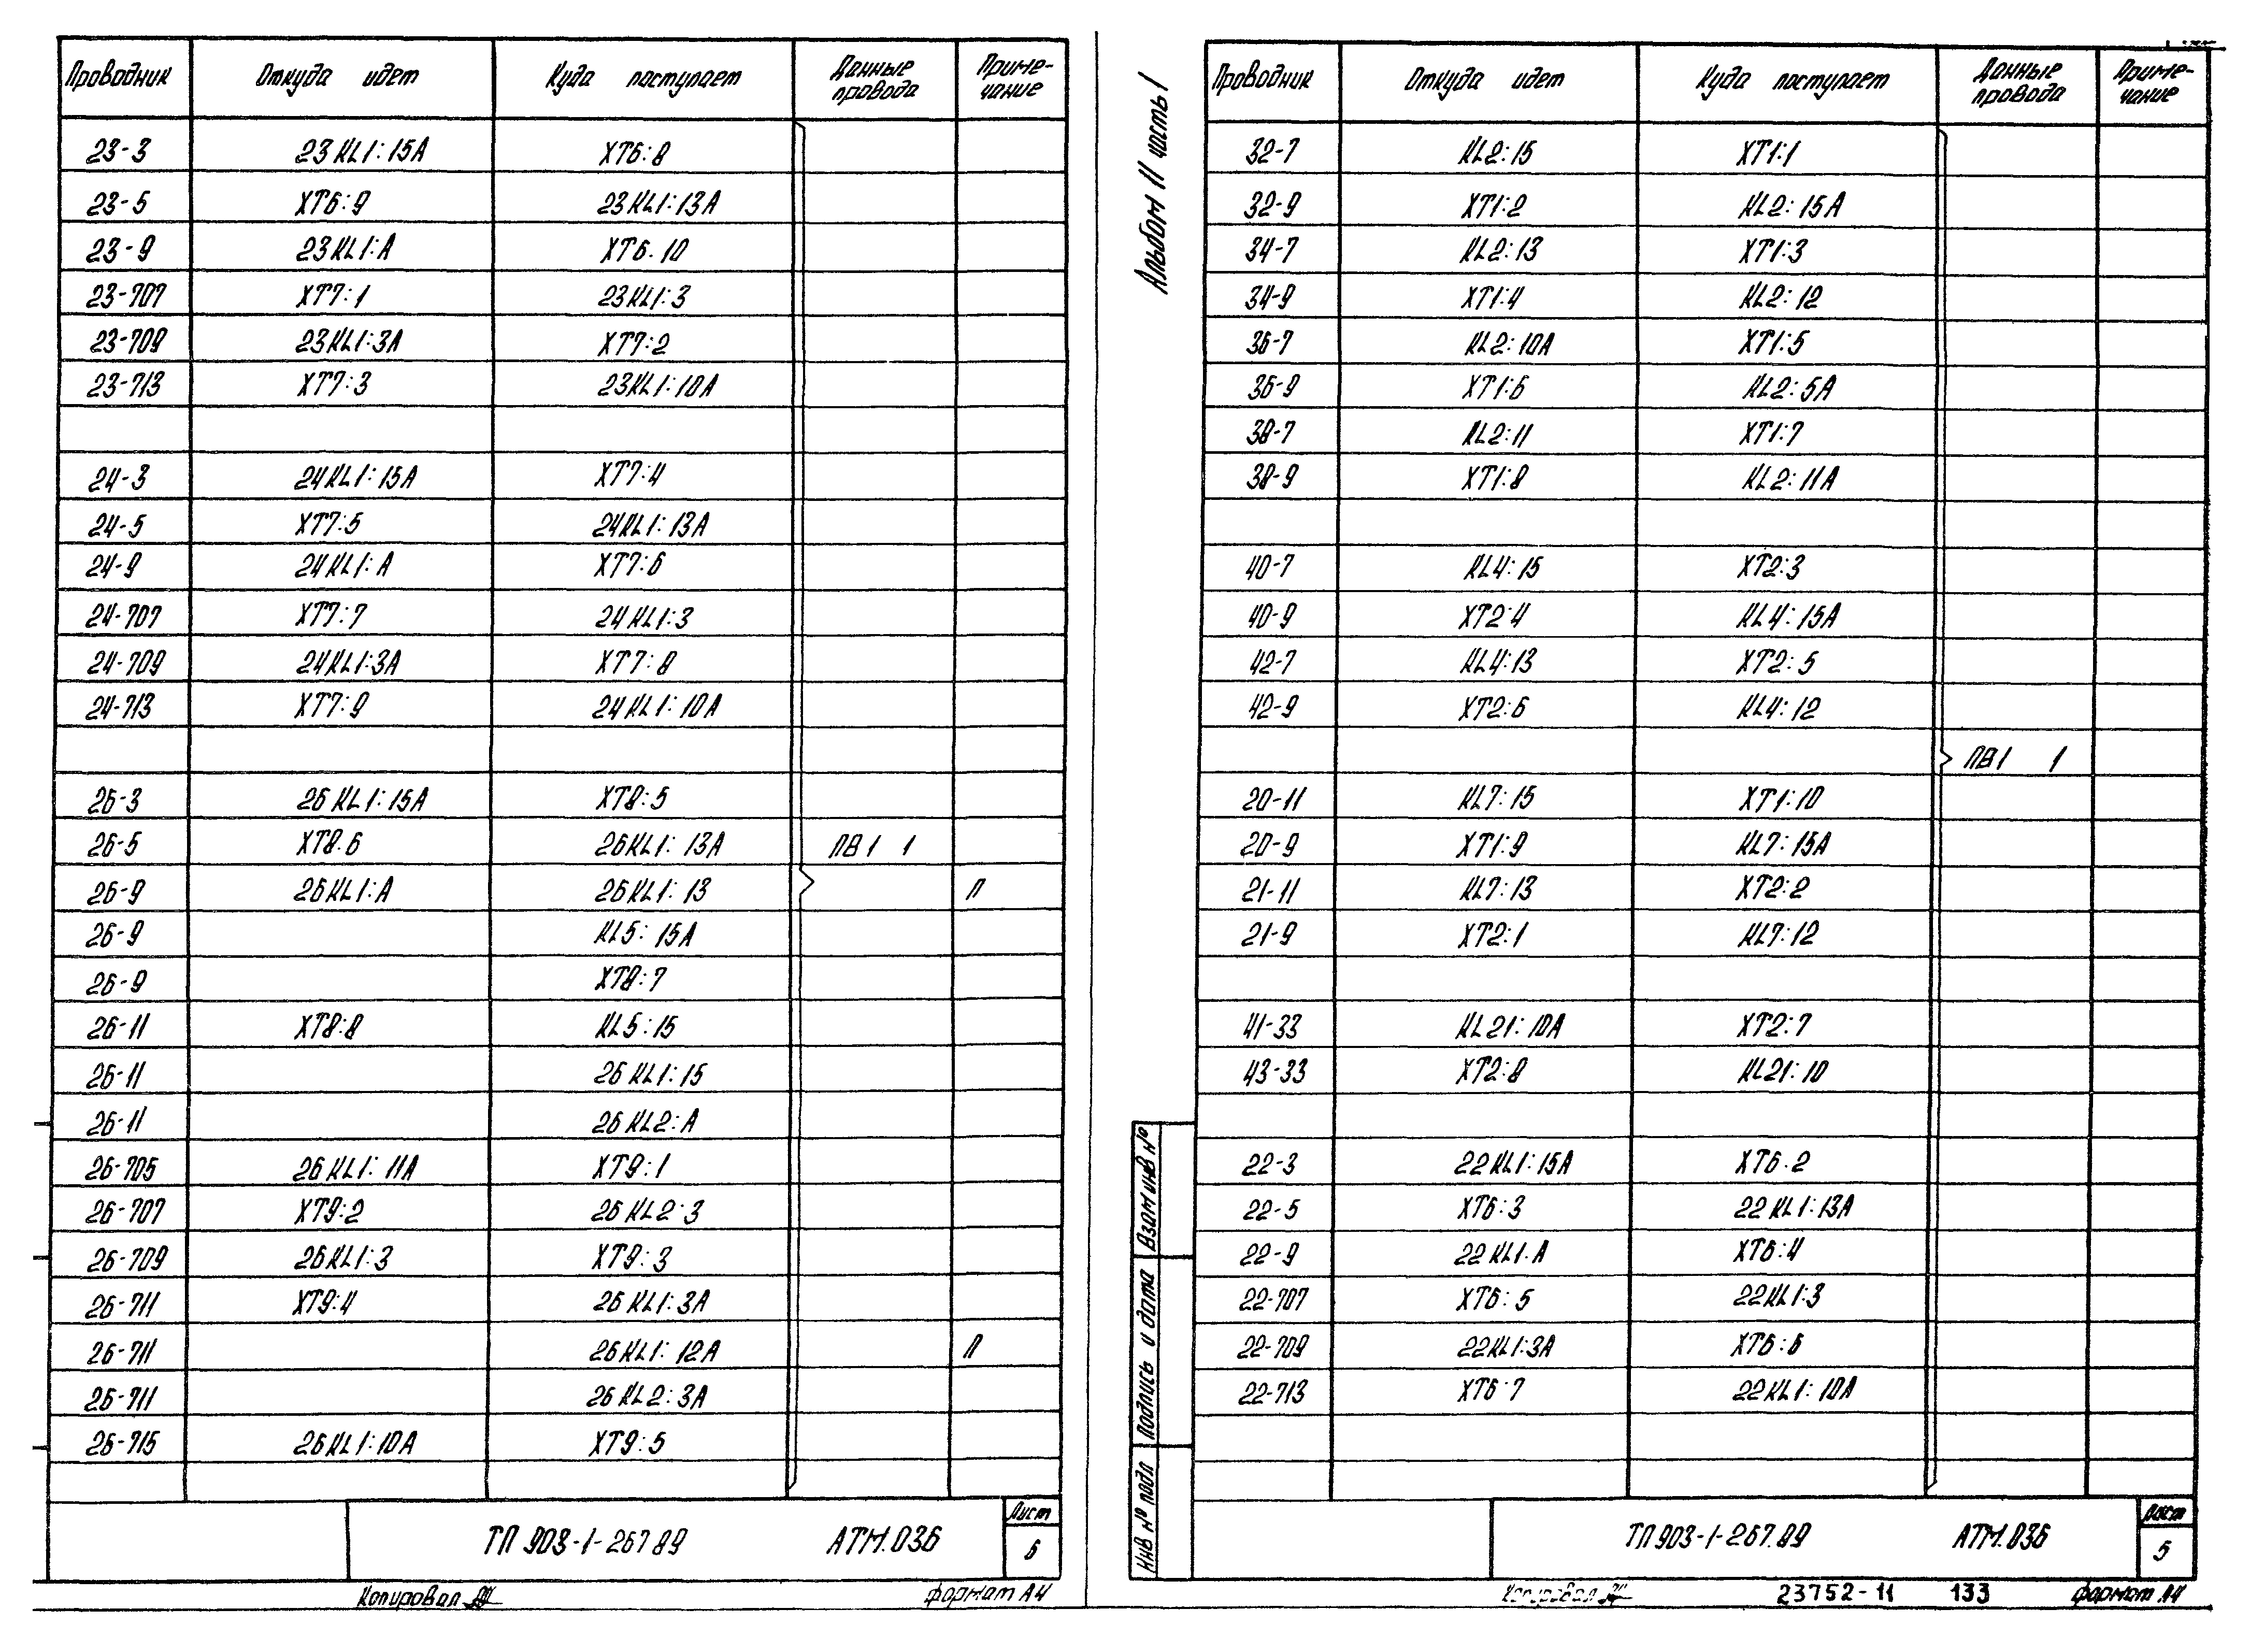 Проводник Откуда идет Куда поступает Данные провода Приме-чание
23-3 23KL1:15A XT6:8
23-5 XT6:9 23KL1:13A
23-9 23KL1:A XT6.10
23-707 XT7:1 23KL1:3
23-709 23KL1:3A XT7:2
23-713 XT7:3 23KL1:10A
24-3 24KL1:15A XT7:4
24-5 XT7:5 24KL1:13A
24-9 24KL1:A XT7:6
24-707 XT7:7 24KL1:3
24-709 24KL1:3A XT7:8
24-713 XT7:9 24KL1:10A
26-3 26KL1:15A XT8:5
26-5 XT8.6 26KL1:13A ПВ1 1
26-9 26KL1:A 26KL1:13 П
26-9 KL5:15A
26-9 XT8:7
26-11 XT8:8 KL5:15
26-11 26KL1:15
26-11 26KL2:A
26-705 26KL1:11A XT9:1
26-707 XT9:2 26KL2:3
26-709 26KL1:3 XT9:3
26-711 XT9:4 26KL1:3A
26-711 26KL1:12A П
26-711 26KL2:3A
26-715 26KL1:10A XT9:5
ТП 903-1-267 89 АТМ.036 Лист 6
Копировал формат А4
Альбом 11 часть 1
Проводник Откуда идет Куда поступает Данные провода Приме-чание
32-7 KL2:15 XT1:1
32-9 XT1:2 KL2:15A
34-7 KL2:13 XT1:3
34-9 XT1:4 KL2:12
36-7 KL2:10A XT1:5
36-9 XT1:6 KL2:5A
38-7 KL2:11 XT1:7
38-9 XT1:8 KL2:11A
40-7 KL4:15 XT2:3
40-9 XT2:4 KL4:15A
42-7 KL4:13 XT2:5
42-9 XT2:6 KL4:12
ПВ1 1
20-11 KL7:15 XT1:10
20-9 XT1:9 KL7:15A
21-11 KL7:13 XT2:2
21-9 XT2:1 KL7:12
41-33 KL21:10A XT2:7
43-33 XT2:8 KL21:10
22-3 22KL1:15A XT6.2
22-5 XT6:3 22KL1:13A
22-9 22KL1.A XT6:4
22-707 XT6:5 22KL1:3
22-709 22KL1:3A XT6:6
22-713 XT6:7 22KL1:10A
Взам инв №
Подпись и дата
Инв № подл
ТП 903-1-267.89 АТМ.036 Лист 5
Копировал 23752-11 133 формат А4